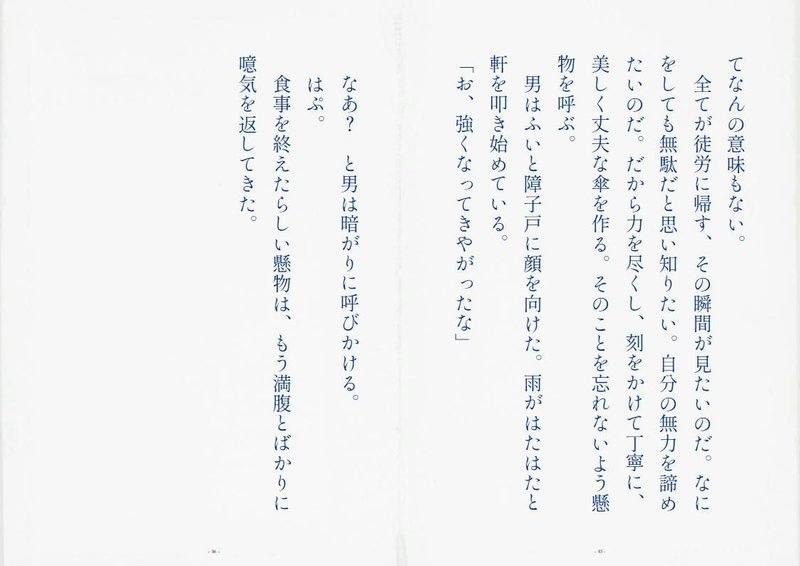 てなんの意味もない。
　全てが徒労に帰す、その瞬間が見たいのだ。なに
をしても無駄だと思い知りたい。自分の無力を諦め
たいのだ。だから力を尽くし、刻をかけて丁寧に、
美しく丈夫な傘を作る。そのことを忘れないよう懸
物を呼ぶ。
　男はふいと障子戸に顔を向けた。雨がはたはたと
軒を叩き始めている。
「お、強くなってきやがったな」
- 85 -
なあ？　と男は暗がりに呼びかける。
はぷ。
　食事を終えたらしい懸物は、もう満腹とばかりに
噫気を返してきた。
- 86 -